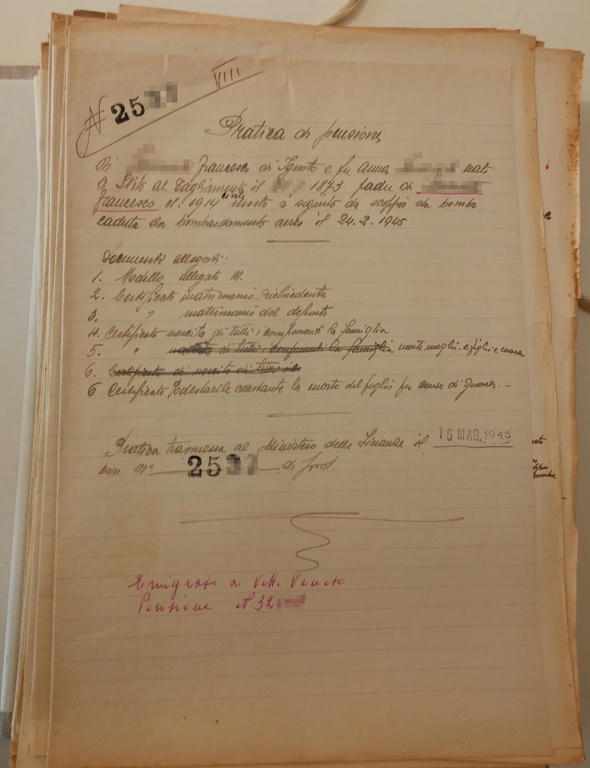 N 25 VIII
Pratica di pensione
Di Francesco di Ignoto e fu Anna nato
a S.Vito al Tagliamento il 1873 padre di
Francesco cl. 1914 civile morto a seguito da scoppio da bomba
caduta da bombardamento aereo il 24-2-1945
Documenti allegati:
1. Modello allegato N.
2. Certificato matrimonio richiedente
3. " matrimonio del defunto
4. Certificato nascita di tutti i componenti la famiglia
5. " nascita di tutti i componenti la famiglia morte moglie e figli
6. Certificato di nascita di tutti
6 Certificato Podestarile constante la morte del figlio per cause di guerra. -
Pratica trasmessa al Ministero delle Finanze il 16 MAG. 1945
con N° 25 di prot.
Emigrato a Vitt. Veneto
Pensione N 32